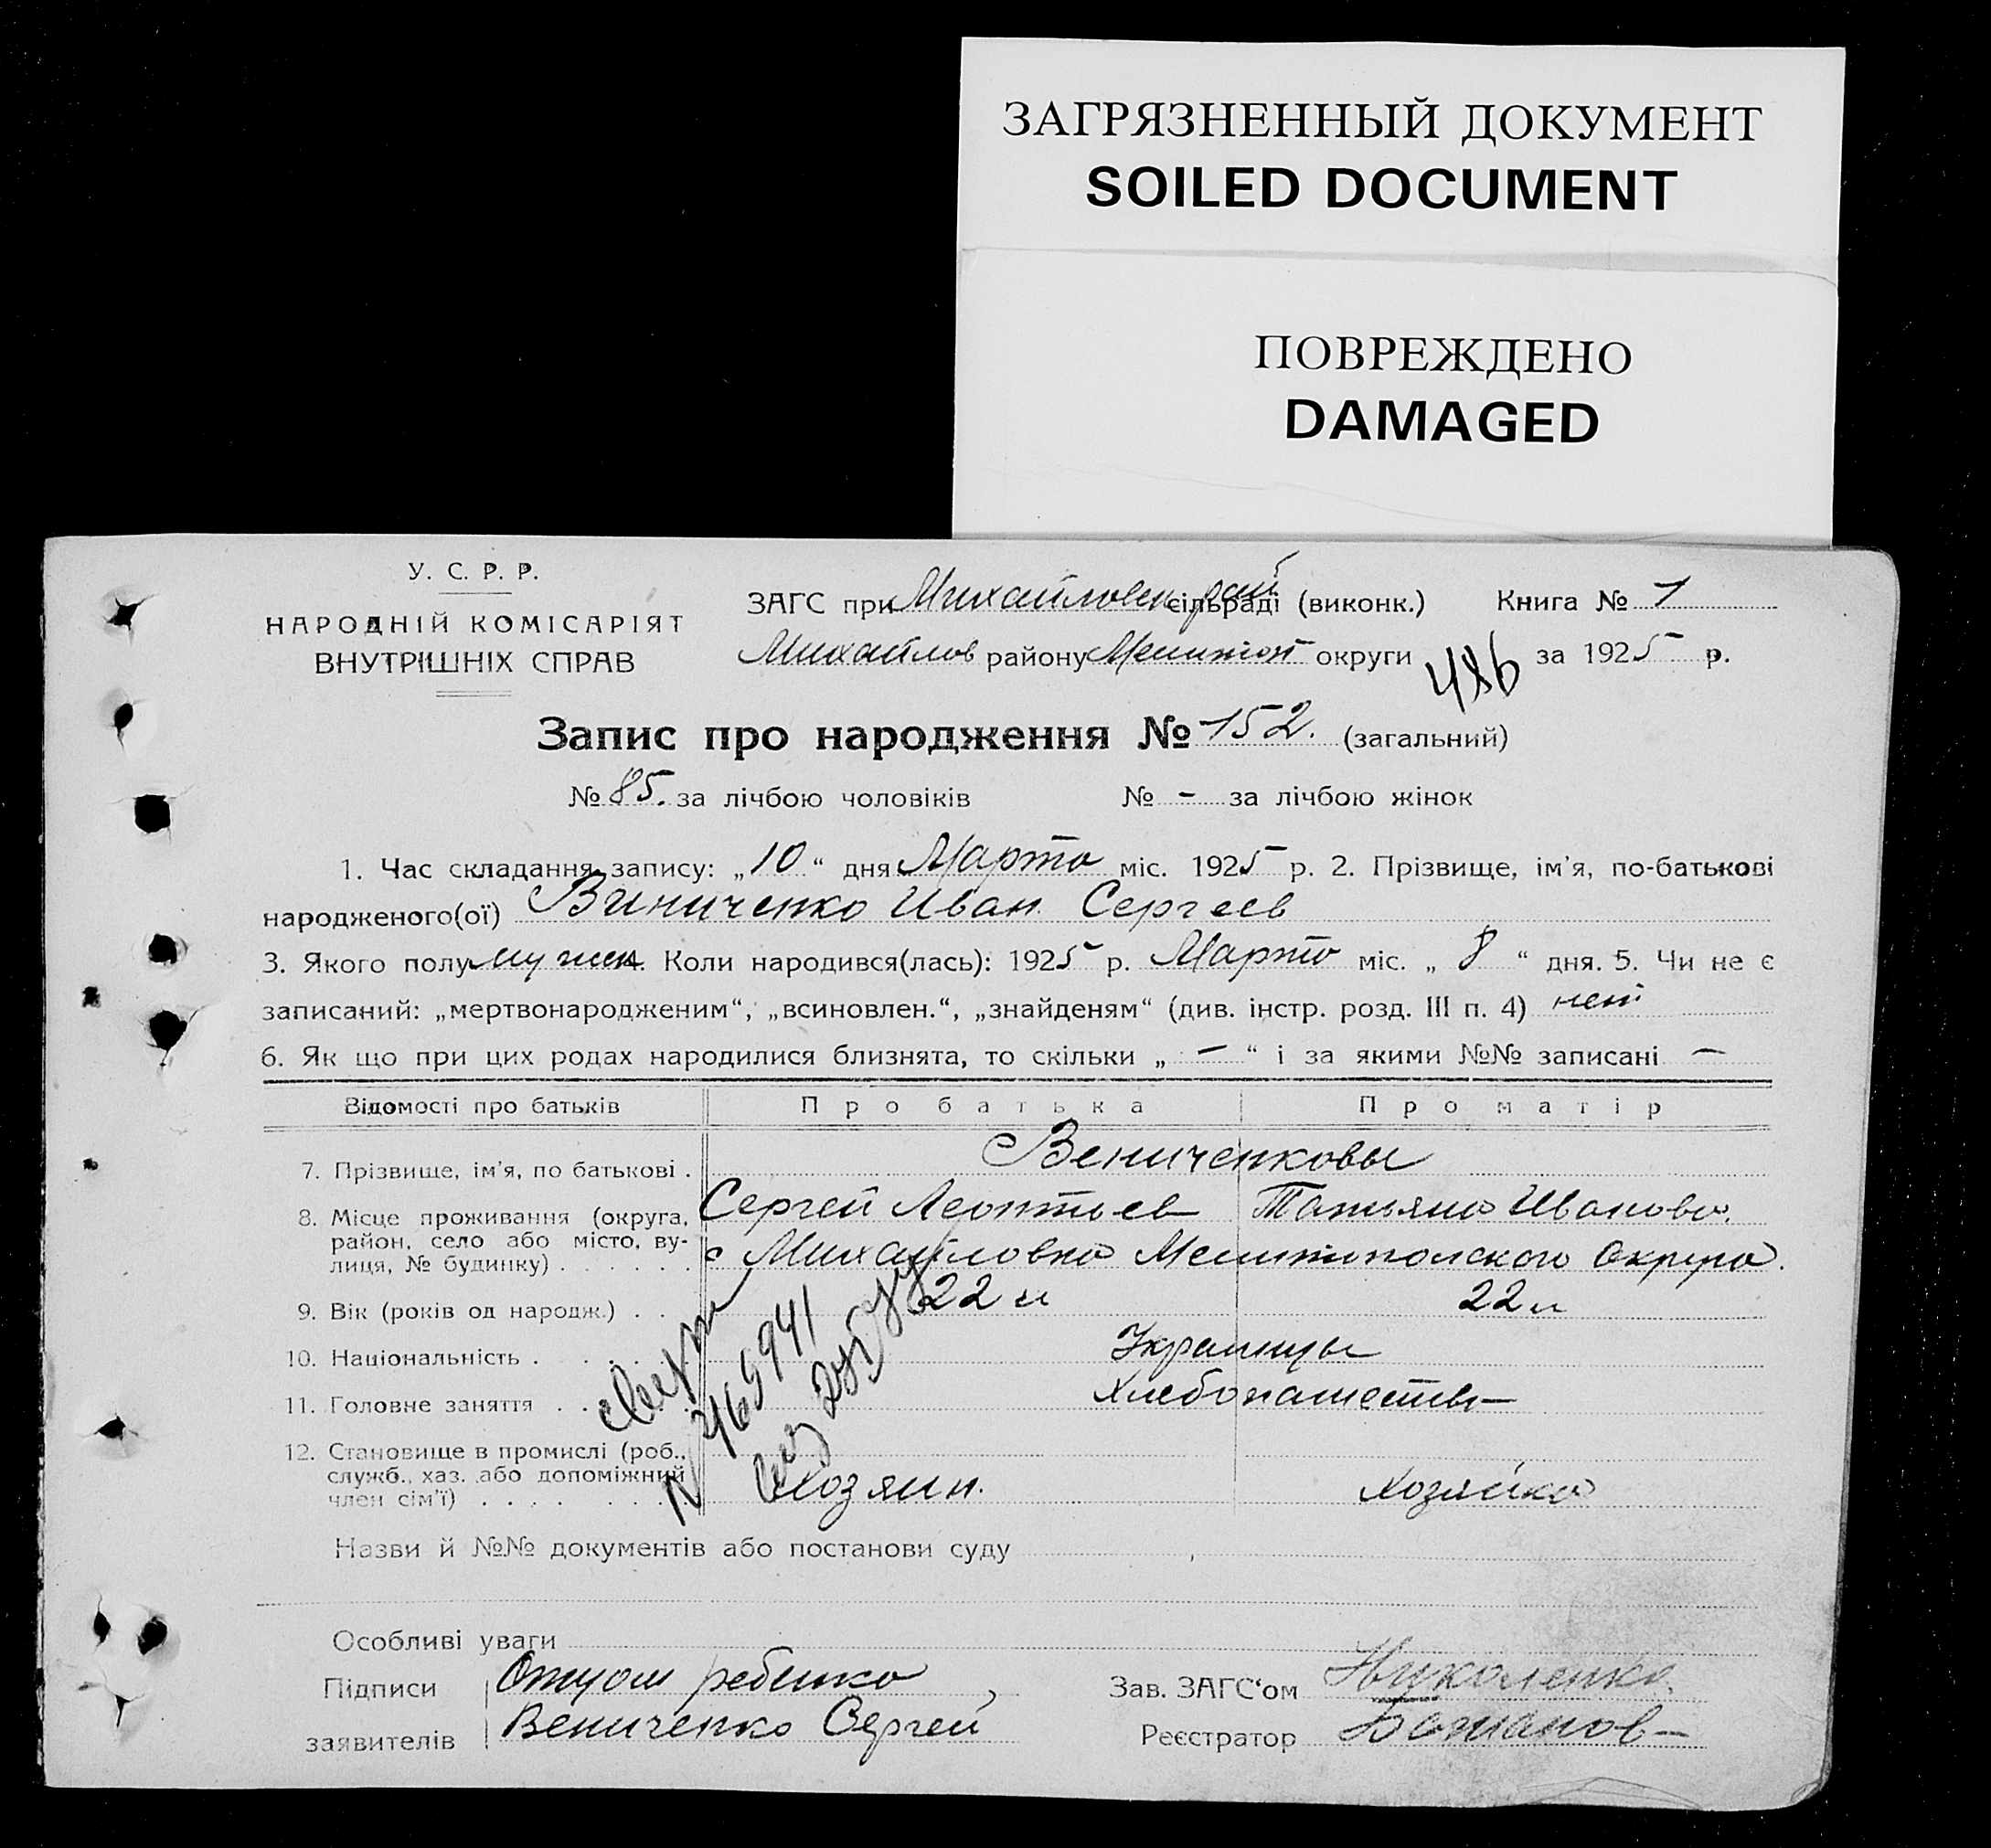 ЗАГРЯЗНЕННЫЙ ДОКУМЕНТ
SOILED DOCUMENT
ПОВРЕЖДЕНО
DAMAGED
У. С. Р. Р.
НАРОДНІЙ КОМІСАРІЯТ
ВНУТРІШНІХ СПРАВ
ЗАГС при Михайловск рай сільраді (виконк.) Книга № 1
Михайлов району Мелитоп округи 486 за 1925 р.
Запис про народження № 152. (загальний)
№ 85. за лічбою чоловіків № - за лічбою жінок
1. Час складання запису: „10“ дня Марта міс. 1925 р. 2. Прізвище, ім'я, по-батькові
народженого(ої) Виниченко Иван Сергеев
3. Якого полу мужск. Коли народився(лась): 1925 р. Марта міс. „8“ дня. 5. Чи не є
записаний: „мертвонародженим“, „всиновлен.“, „знайденям“ (див. інстр. розд. III п. 4) нет
6. Як що при цих родах народилися близнята, то скільки „ — “ і за якими №№ записані —
Відомості про батьків Про батька Про матір
7. Прізвище, ім'я, по батькові . Вениченковы
8. Місце проживання (округа, Сергей Леонтьев Татьяна Иванова.
район, село або місто, ву-
лиця, № будинку) . . . . . . с Михайловка Мелитопольского Округа.
9. Вік (років од народж.) . . . 22 л 22 л
10. Національність . Украинцы
11. Головне заняття . . Хлебопашество
12. Становище в промислі (роб.,
служб., хаз. або допоміжний
член сім'ї) . . . . Хозяин. Хозяйка
№ 469941
Назви й №№ документів або постанови суду
Особливі уваги
Підписи Отцом ребенка
заявителів Вениченко Сергей
Зав. ЗАГС'ом Николенко.
Реєстратор Божанов